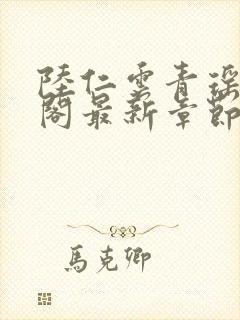 陸仁雲青瑶
閣最新章節
馬克卿